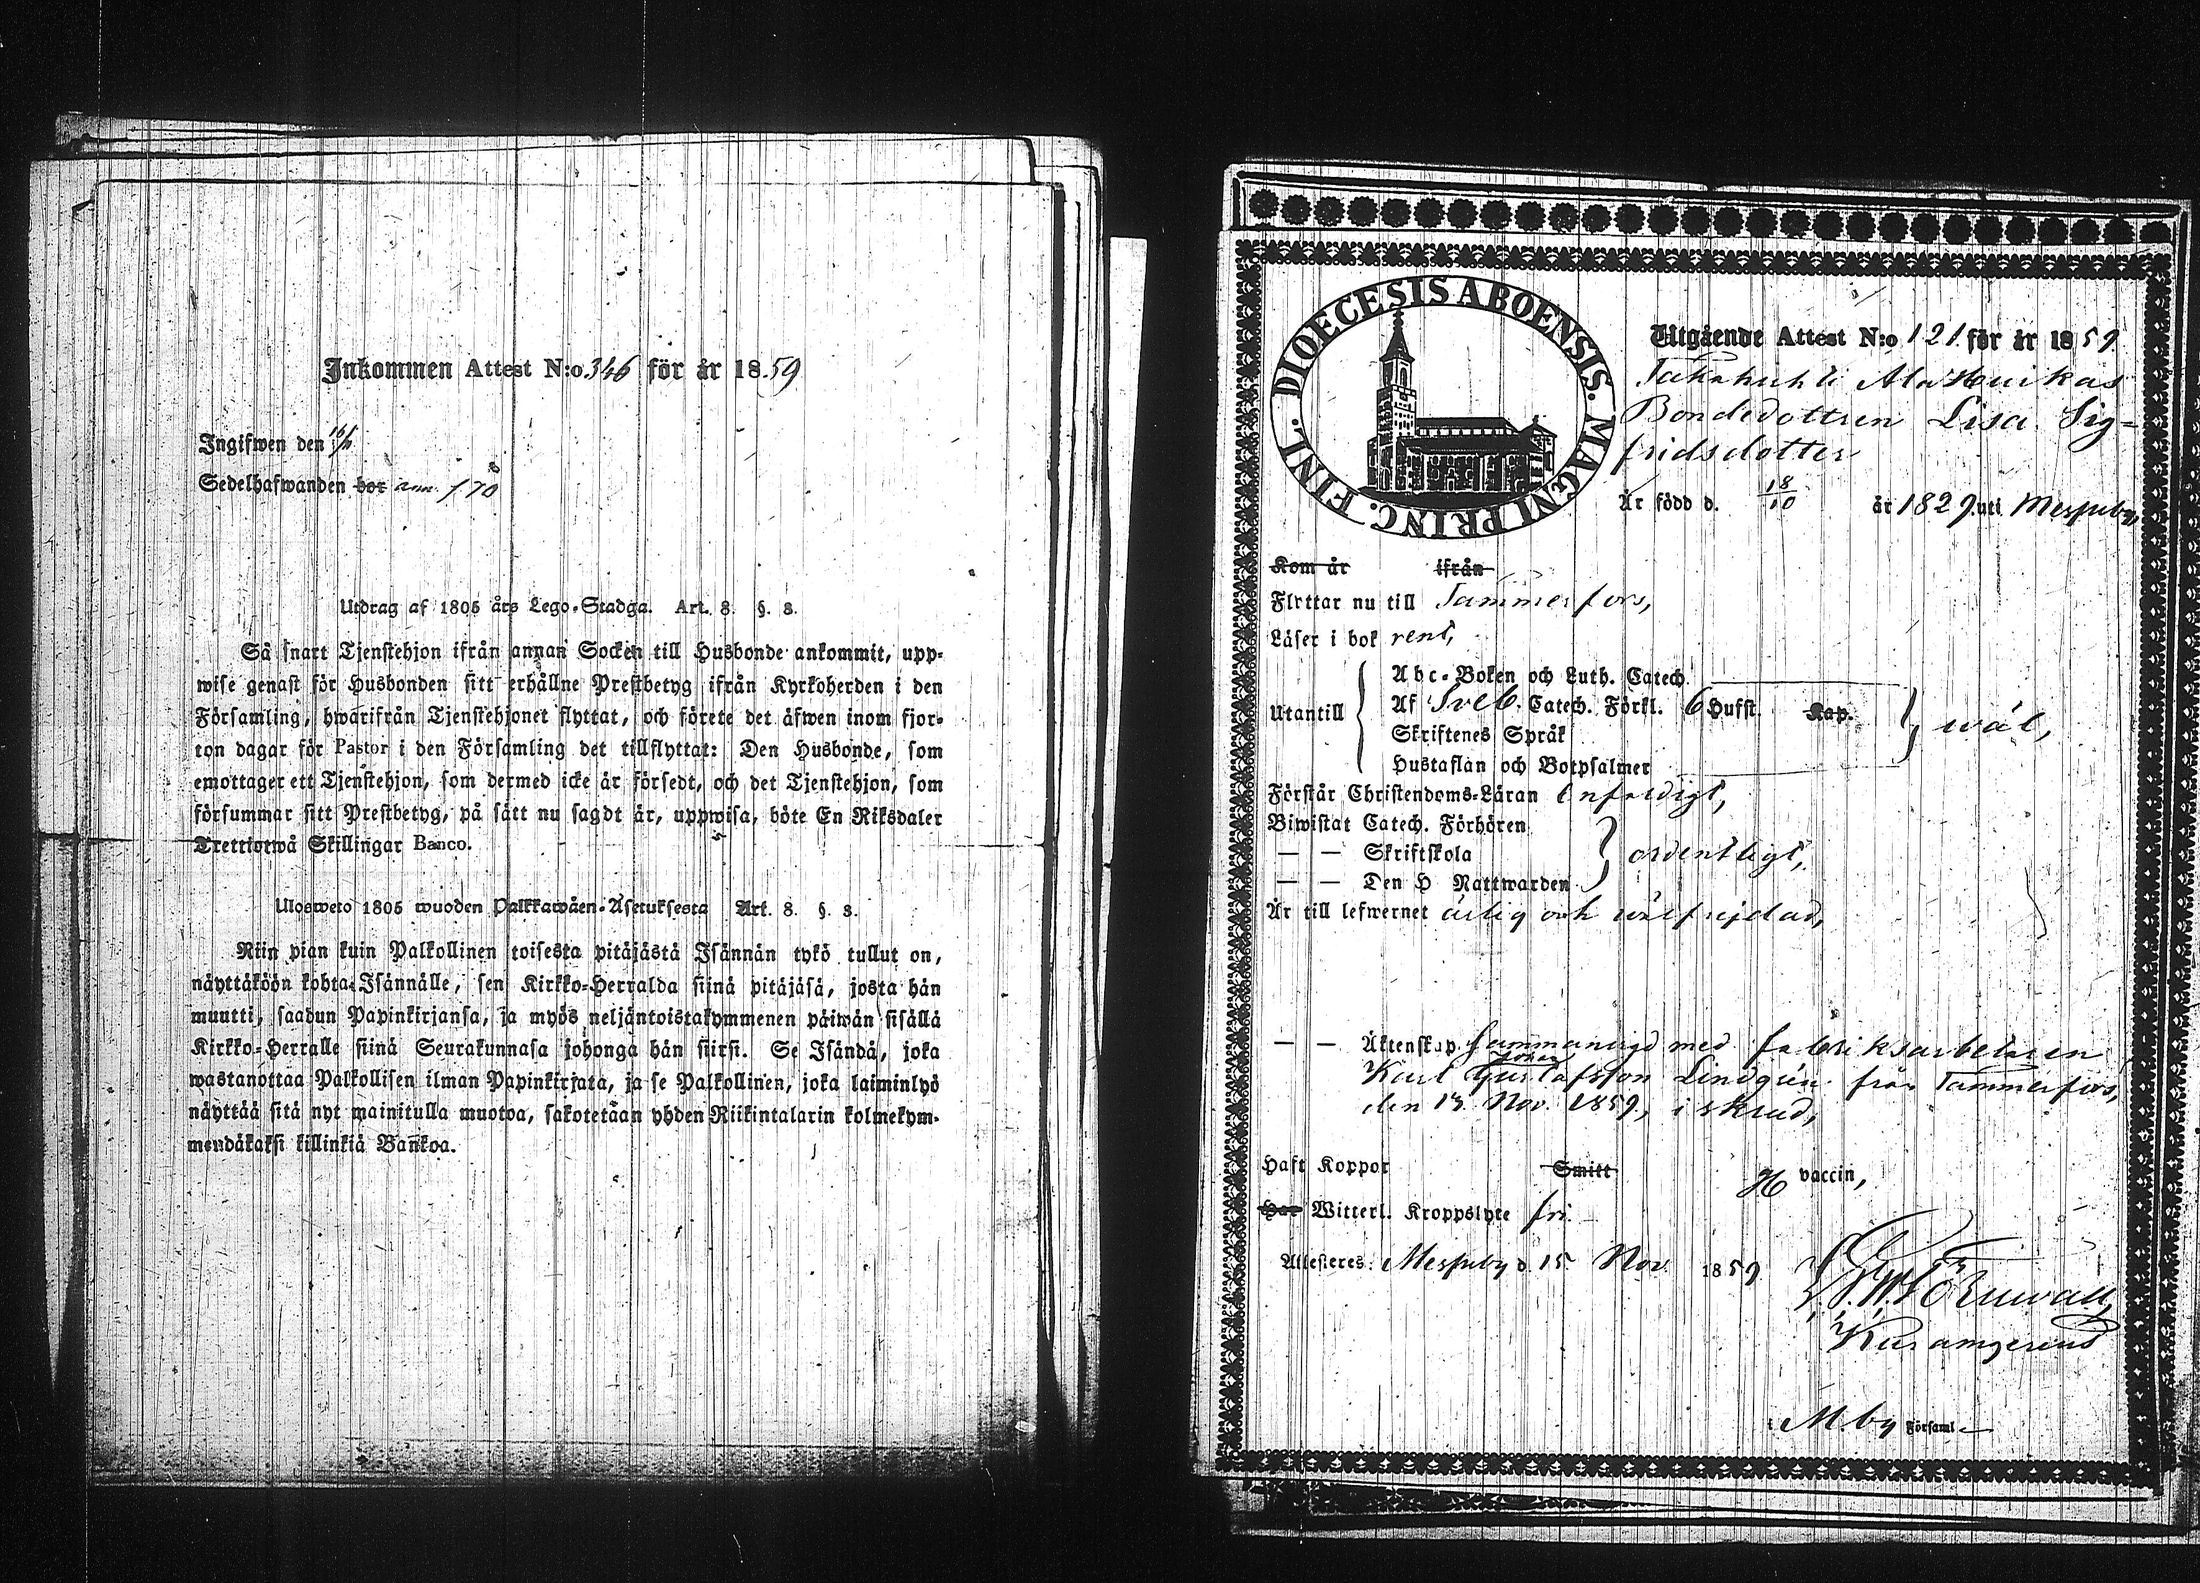 Inkommen Attest N:o 346 för år 1859
Ingifwen den
Sedelhafwanden bor ann. 170
Utdrag af 1805 års Lego-Stadga. Art. 8. §. 8.
Så snart Tjenstehjon ifrån annan Socken till Husbonde ankommit, upp-
wise genast för Husbonden sitt erhållne Prestbetyg ifrån Kyrkoherden i den
Församling, hwarifrån Tjenstehjonet flyttat, och förete det äfwen inom fjor-
ton dagar för Pastor i den Församling det tillflyttat: Den Husbonde, som
emottager ett Tjenstehjon, som dermed icke är försedt, och det Tjenstehjon, som
försummar sitt Prestbetyg, på sätt nu sagdt är, uppwisa, böte En Riksdaler
Trettiotwå Skillingar Banco.
Ulosweto 1805 wuoden Palkkawäen-Asetuksesta Art. 8. §. 8.
Niin pian kuin Palkollinen toisesta pitäjästä Isännän tykö tullut on,
näyttäköön kohta Isännälle, sen Kirkko-Herralda siinä pitäjäsä, josta hän
muutti, saadun Papinkirjansa, ja myös neljäntoistakymmenen päiwän sisällä
Kirkko-Herralle siinä Seurakunnasa johonga hän siirsi. Se Isändä, joka
wastanottaa Palkollisen ilman Papinkirjata, ja se Palkollinen, joka laiminlyö
näyttää sitä nyt mainitulla muotoa, sakotetaan yhden Riikintalarin kolmekym-
mendäkaksi killinkiä Bankoa.
DIOECESIS ABOENSIS. MAGNI PRINC. FINL.
Utgående Attest N:o 121 för år 1859
Bondedottren Lisa Sig-
fridsdotter
Är född d. 18/10 år 1829 uti Messuby
Kom år ifrån
Flyttar nu till Tammerfors,
Läser i bok rent,
Abc-Boken och Luth. Catech.
Utantill Af Sveb. Catech. Förkl. 6 Hufst. Kap. wäl,
Skriftenes Språk
Hustaflan och Botpsalmer
Förstår Christendoms-Läran enfaldigt,
Biwistat Catech. Förhören
— — Skriftskola ordentligt,
— — Den H Nattwarden
Är till lefwernet ärlig och wälfrejdad,
— — Äktenskap. Sammanvigd med fabriksarbetaren
Karl Gustafsson Lindgrén från Tammerfors,
den 13 Nov. 1859, i skrud,
Haft Koppor Smitt H vaccin,
Har Witterl. Kroppslyte fri.
Attesteres: Messuby d. 15 Nov 1859
i M.by Församl